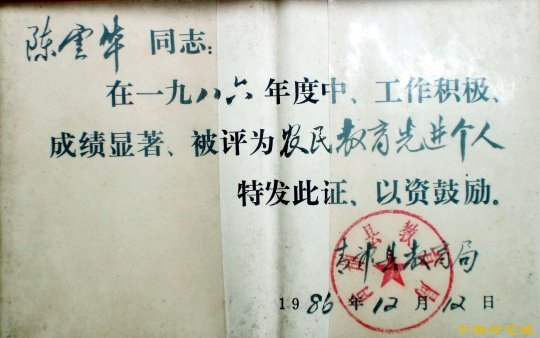 陈雲华 同志:
在一九八六年度中、工作积极、
成绩显著、被评为农民教育先进个人
特发此证、以资鼓励。
青浦县教育局
青浦县教育局
1986年12月12日